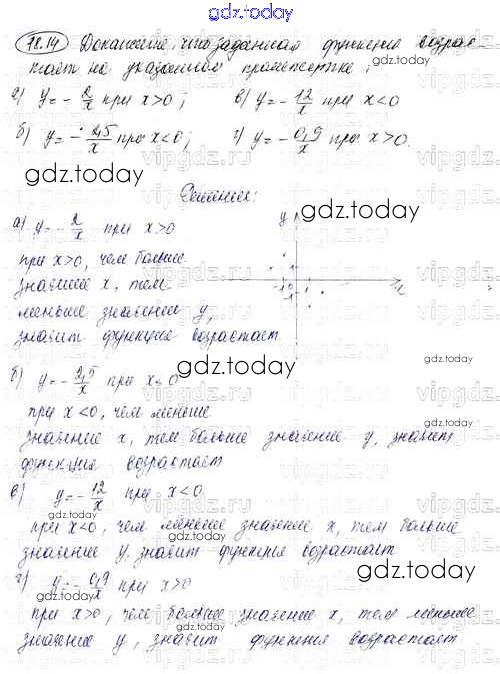 gdz.today
18.14 Докажите, что заданная функция возрас-
тает на указанном промежутке:
а) y = - 2/x при x>0; в) y = - 12/x при x<0
б) y = - 2,5/x при x<0; г) y = - 0,9/x при x>0.
gdz.today
gdz.today
Решение:
а) y = - 2/x при x>0
при x>0, чем больше
значение x, тем
меньше значение y,
значит функция возрастает
y
x
gdz.today
gdz.today
gdz.today
б) y = - 2,5/x при x<0
при x<0, чем меньше
значение x, тем больше значение y, значит
функция возрастает
в) y = - 12/x при x<0
gdz.today
при x<0, чем меньше значение x, тем больше
значение y, значит функция возрастает
gdz.today
г) y = - 0,9/x при x>0
gdz.today
при x>0, чем больше значение x, тем меньше
значение y, значит функция возрастает
gdz.today